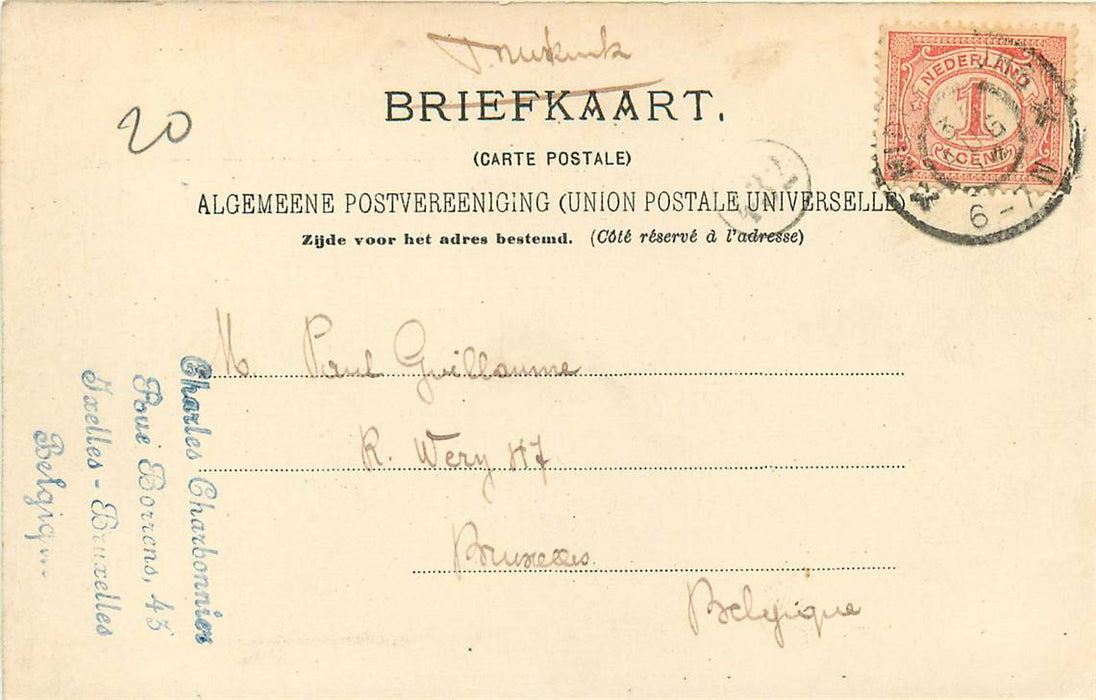 20
BRIEFKAART.
(CARTE POSTALE)
ALGEMEENE POSTVEREENIGING (UNION POSTALE UNIVERSELLE)
Zijde voor het adres bestemd. (Côté réservé à l'adresse)
NEDERLAND
1
CENT
6-7N
M. Paul Guillaume
R. Wery 87
Bruxelles
Belgique
Charles Charbonnier
Roue Borrens, 43
Ixelles - Bruxelles